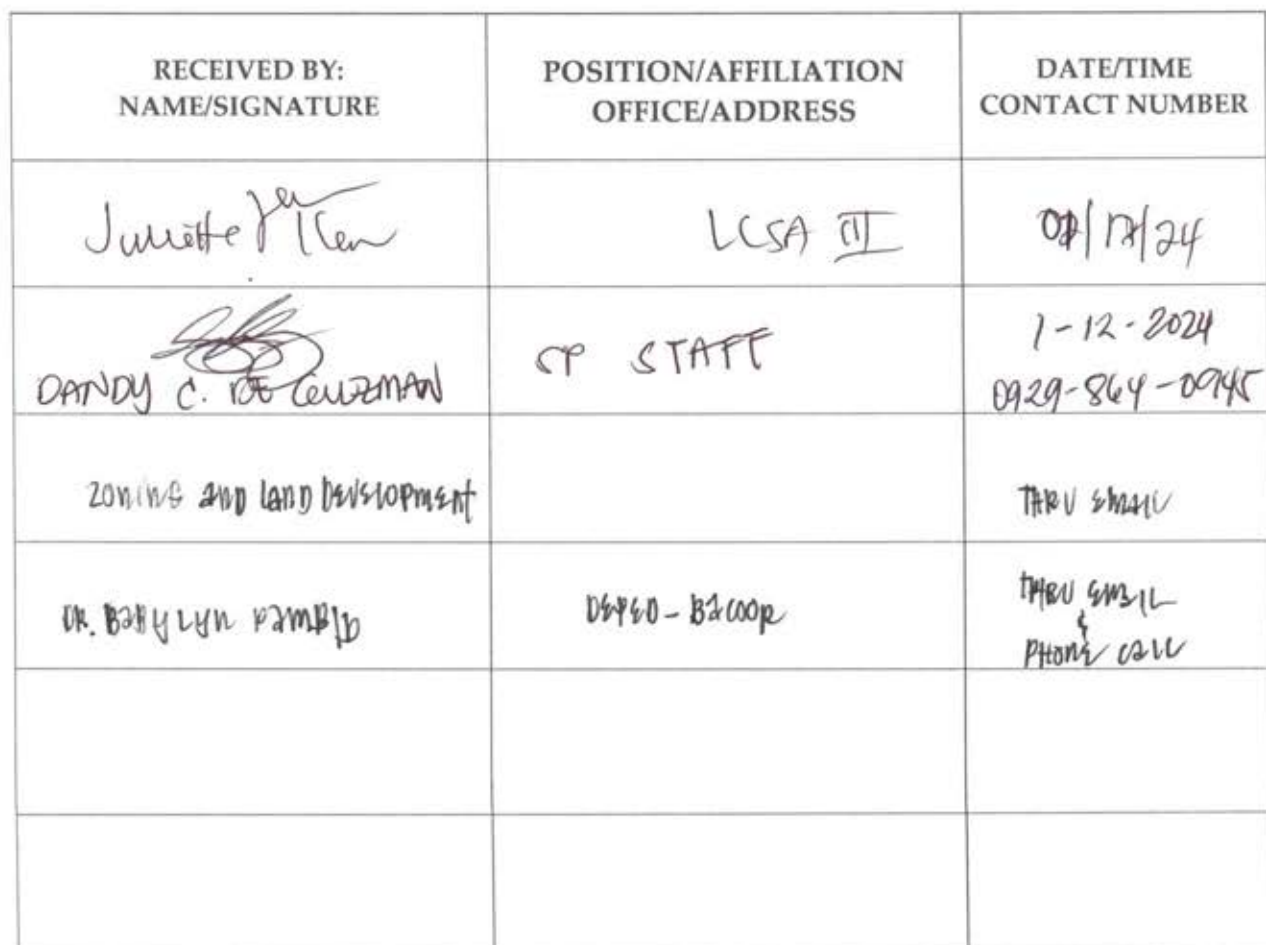 RECEIVED BY:
NAME/SIGNATURE
POSITION/AFFILIATION
OFFICE/ADDRESS
DATE/TIME
CONTACT NUMBER
Juliette
LCSA III
DANDY C. DE GUZMAN
SP STAFF
1-12-2024
0929-864-0945
ZONING AND LAND DEVELOPMENT
THRU EMAIL
DR. BABYLYN PAMBID
DEPED - BACOOR
THRU EMAIL
&
PHONE CALL